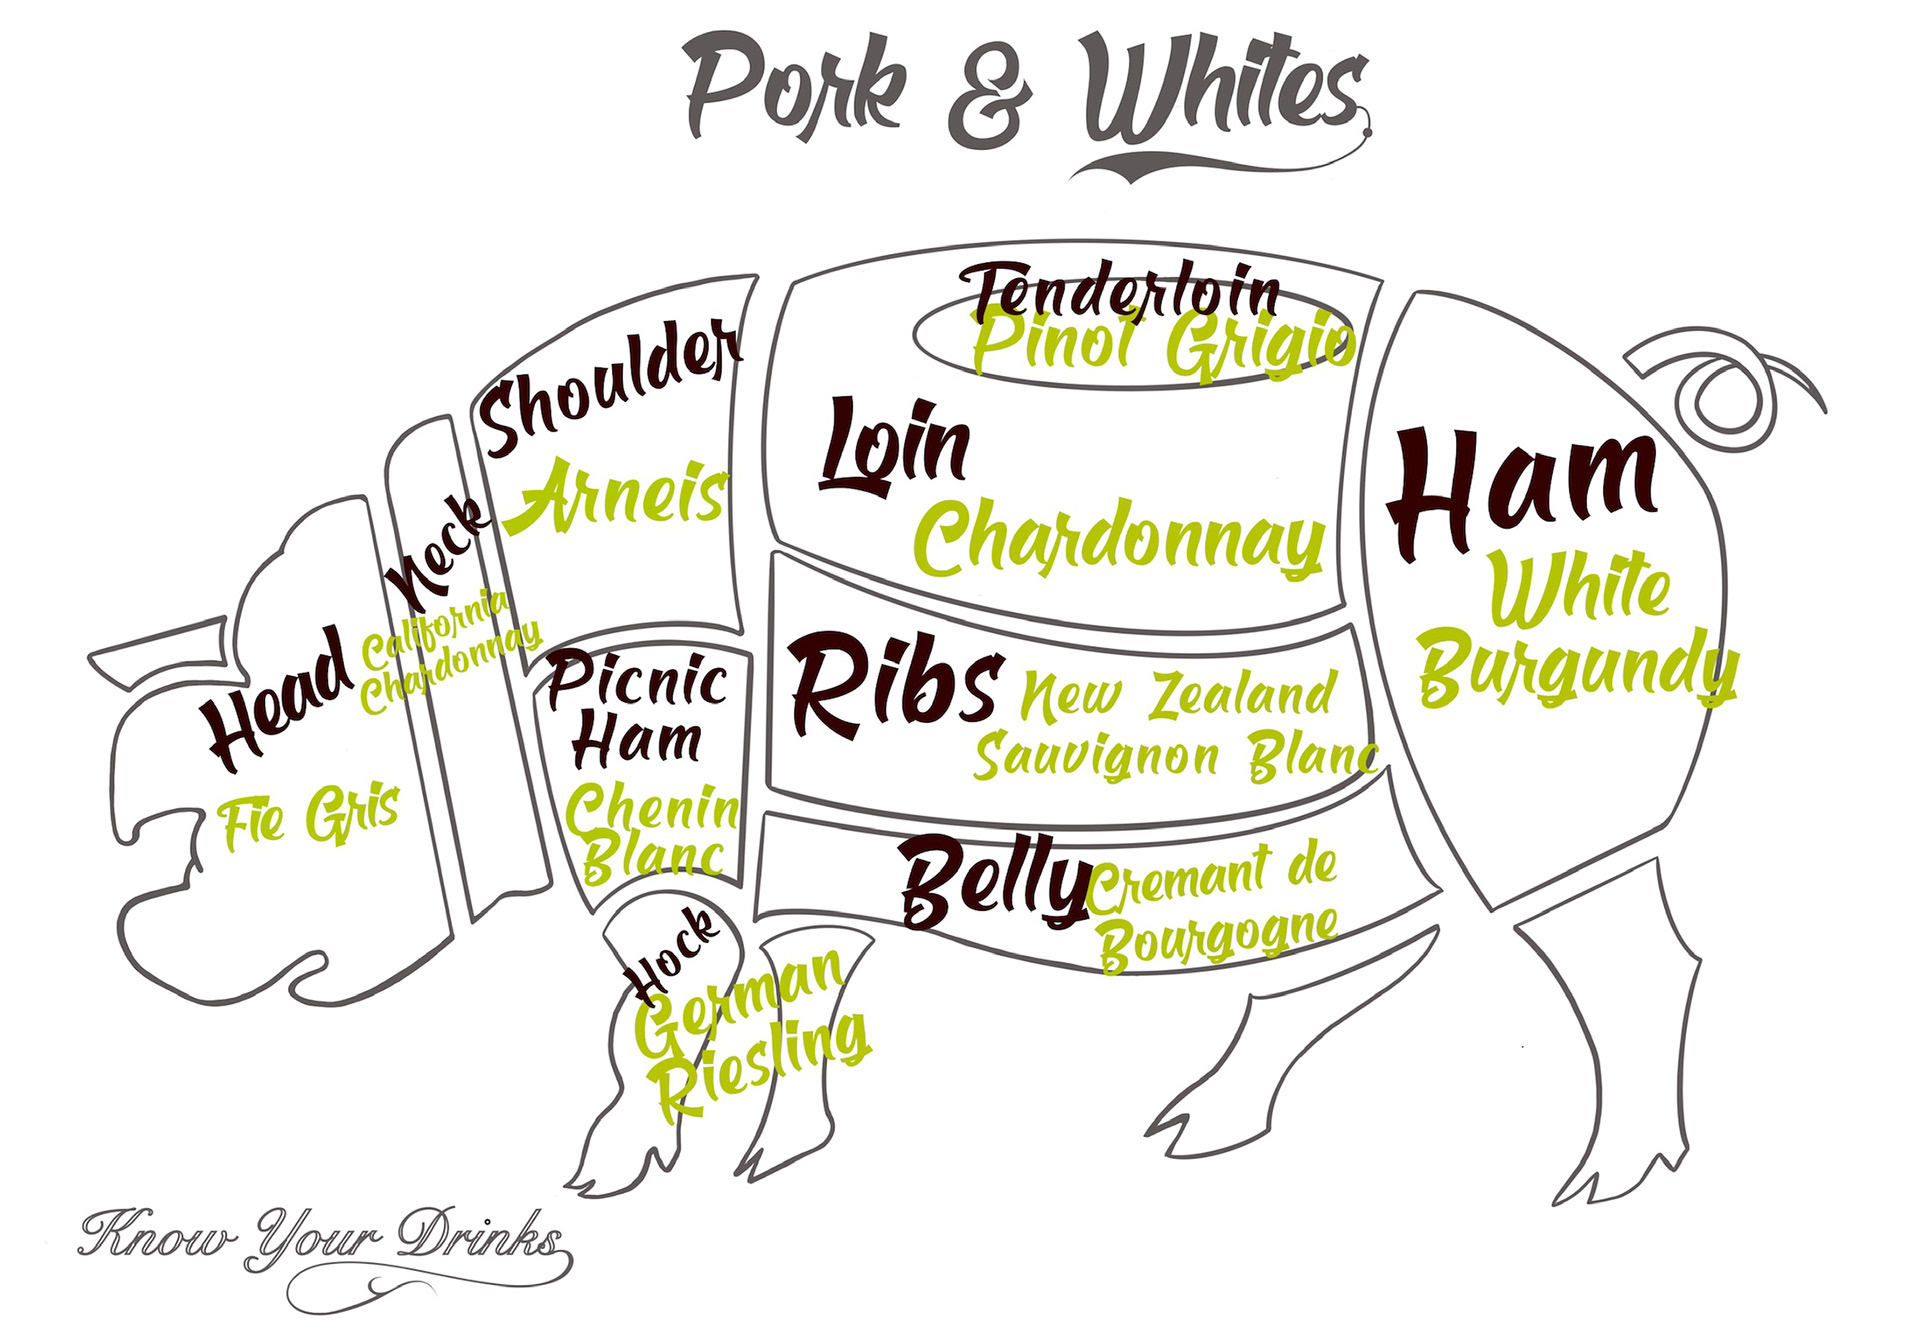 Pork & Whites
Tenderloin
Pinot Grigio
Shoulder
Arneis
Loin
Chardonnay
Ham
White
Burgundy
Neck
California
Chardonnay
Head
Fie Gris
Picnic
Ham
Chenin
Blanc
Ribs
New Zealand
Sauvignon Blanc
Belly
Cremant de
Bourgogne
Hock
German
Riesling
Know Your Drinks